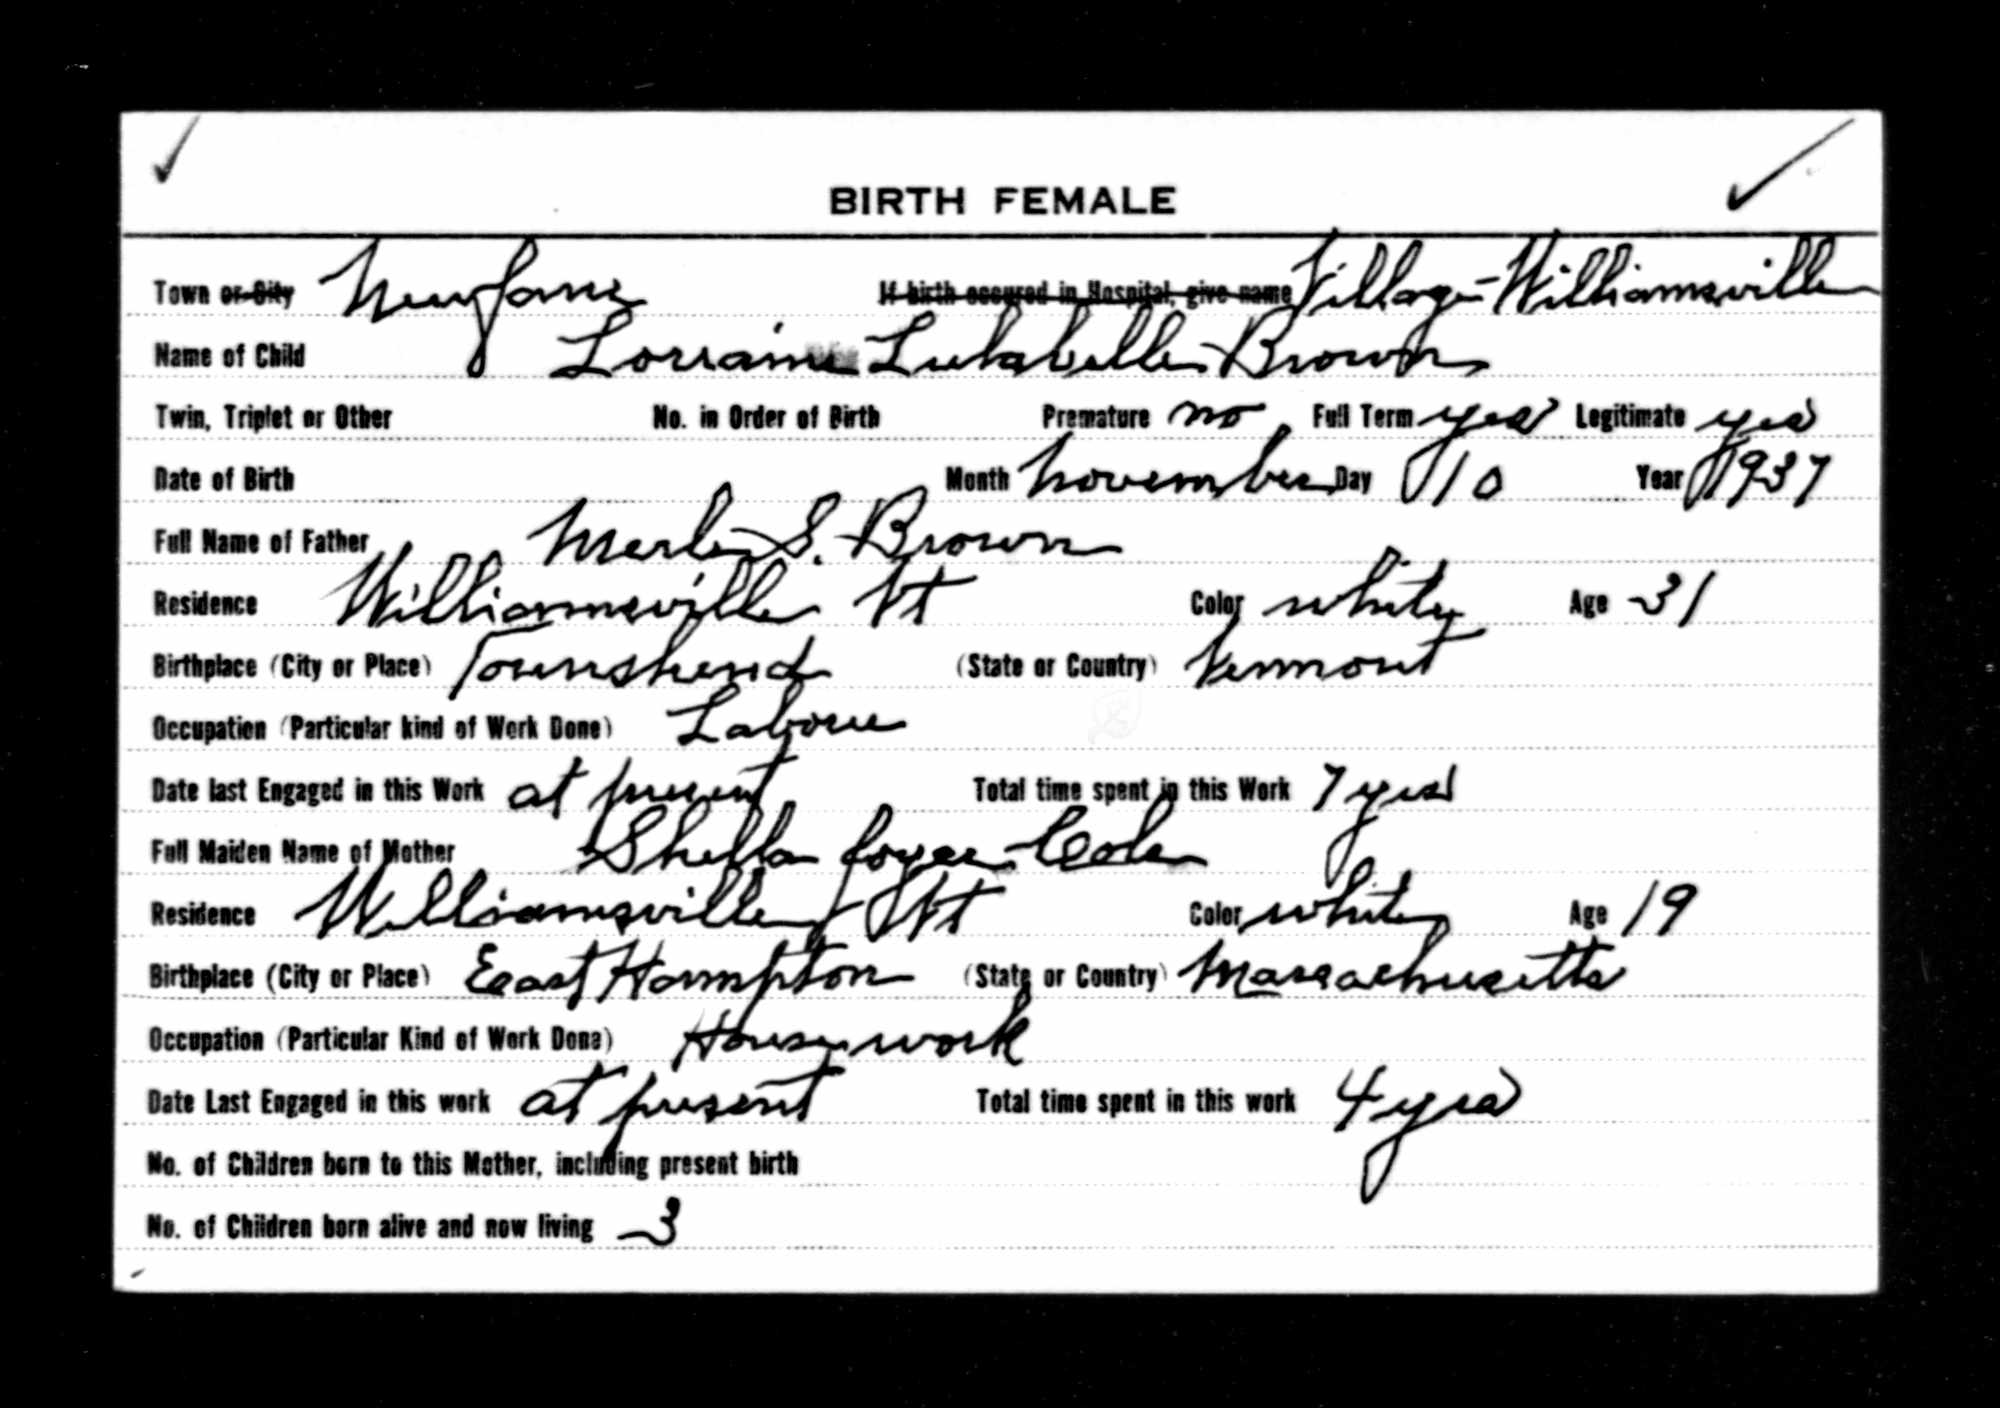 BIRTH FEMALE
Town or City Newfane If birth occured in Hospital, give name Village-Williamsville
Name of Child Lorraine Lulabelle Brown
Twin, Triplet or Other No. in Order of Birth Premature no Full Term yes Legitimate yes
Date of Birth Month November Day 10 Year 1937
Full Name of Father Merle S. Brown
Residence Williamsville Vt Color white Age 31
Birthplace (City or Place) Townshend (State or Country) Vermont
Occupation (Particular kind of Work Done) Laborer
Date last Engaged in this Work at present Total time spent in this Work 7 yrs
Full Maiden Name of Mother Joyce Cole
Residence Williamsville Vt Color white Age 19
Birthplace (City or Place) East Hampton (State or Country) Massachusetts
Occupation (Particular Kind of Work Done) Housework
Date Last Engaged in this work at present Total time spent in this work 4 yrs
No. of Children born to this Mother, including present birth
No. of Children born alive and now living 3